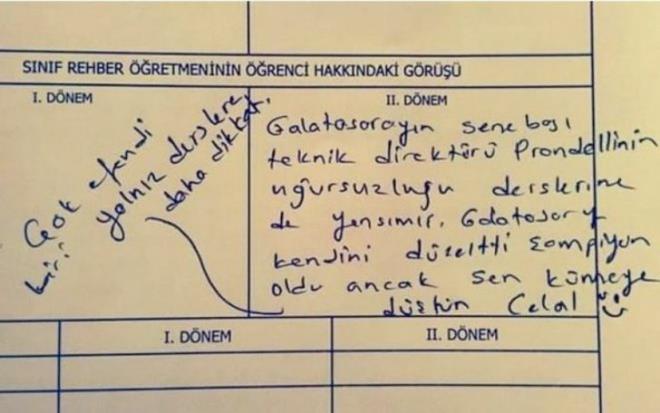 SINIF REHBER ÖĞRETMENİNİN ÖĞRENCİ HAKKINDAKİ GÖRÜŞÜ
I. DÖNEM
Çok efendi
biri.
yalnız derslere
daha dikkat.
II. DÖNEM
Galatasarayın sene başı
teknik direktörü Prandellinin
uğursuzluğu derslerine
de yansımış. Galatasaray
kendini düzeltti şampiyon
oldu ancak sen kümeye
düştün Celal
I. DÖNEM
II. DÖNEM